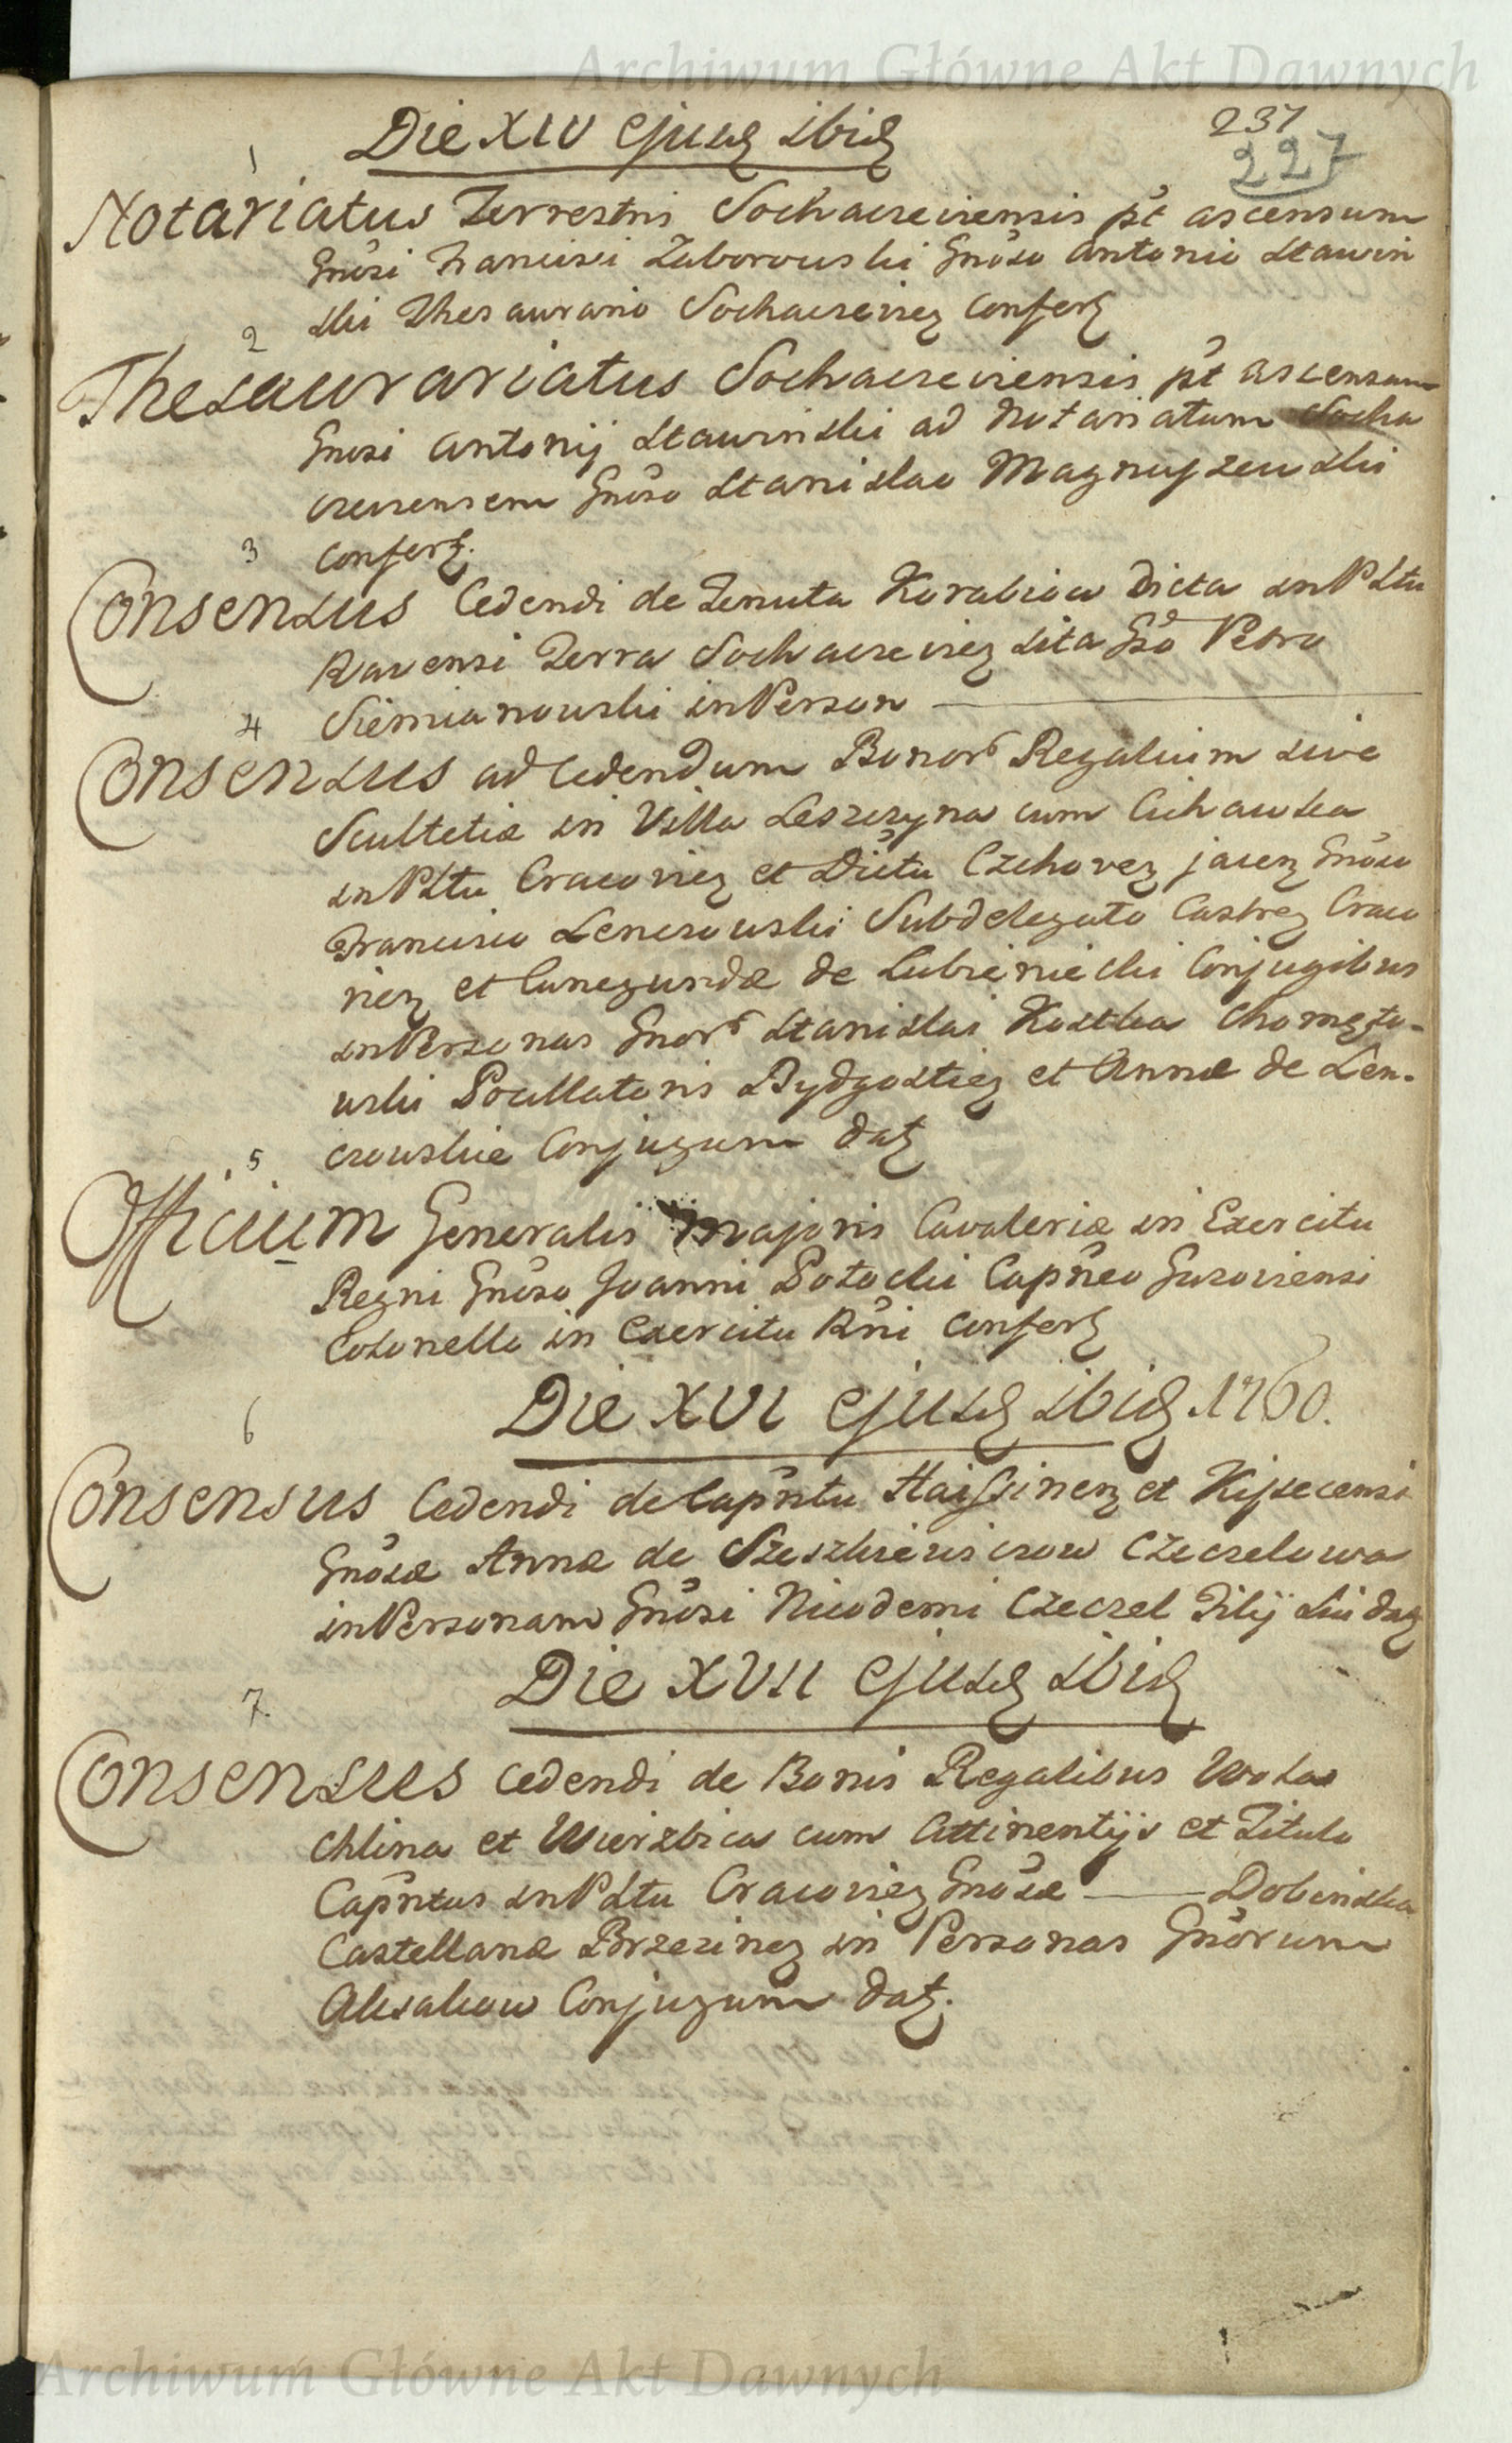 Archiwum Główne Akt Dawnych
Die XIV ejusd ibid
231
227
1
Notariatus Terrestris Sochaczeviensis pt ascensum
Gnosi Francisci Zaborowski Gnoso Antonio Stawin
ski Thesaurario Sochaczevien confert
2
Thesaurariatus Sochaczeviensis pt ascensum
Gnosi Antonij Stawinski ad Notariatum Socha
czeviensem Gnoso Stanislao Magnuszewski
confert.
3
Consensus Cedendi de Tenuta Korabiow Dicta in Pltu
Ravensi Terra Sochaczevien sita Gso Petro
Siemianowski in Person
4
Consensus ad Cedendum Bonor Regalium sive
Scultetiæ in Villa Leszczyna cum Cichawka
in Pltu Cracovien et Dictu Czchoven jacen Gnoso
Francisco Lenczowski Subdelegato Castren Craco
vien et Cunegundæ de Lubienieckie Conjugibus
in Personas Gnor Stanislai Kostka Chomęto-
wski Pocillatoris Bydgostien et Annæ de Len-
czowskie Conjugum dat
5
Officium Generalis Majoris Cavaleriæ in Exercitu
Regni Gnoso Joanni Potocki Capneo Guzoviensi
Colonello in Exercitu Rni confert
Die XVI ejusd ibid 1760.
6
Consensus Cedendi de Capntu Haissinen et Kisecensi
Gnosæ Annæ de Czeczelowa
in Personam Gnosi Nicodemi Czeczel Filij sui dat
Die XVII ejusd ibid
7
Consensus cedendi de Bonis Regalibus Wola
Chlina et Wierzbica cum Attinentijs et Titulo
Capntus in Pltu Cracovien Gnosæ —— Dobinska
Castellanæ Brzezinen in Personas Gnorum
Aksakow Conjugum dat.
Archiwum Główne Akt Dawnych